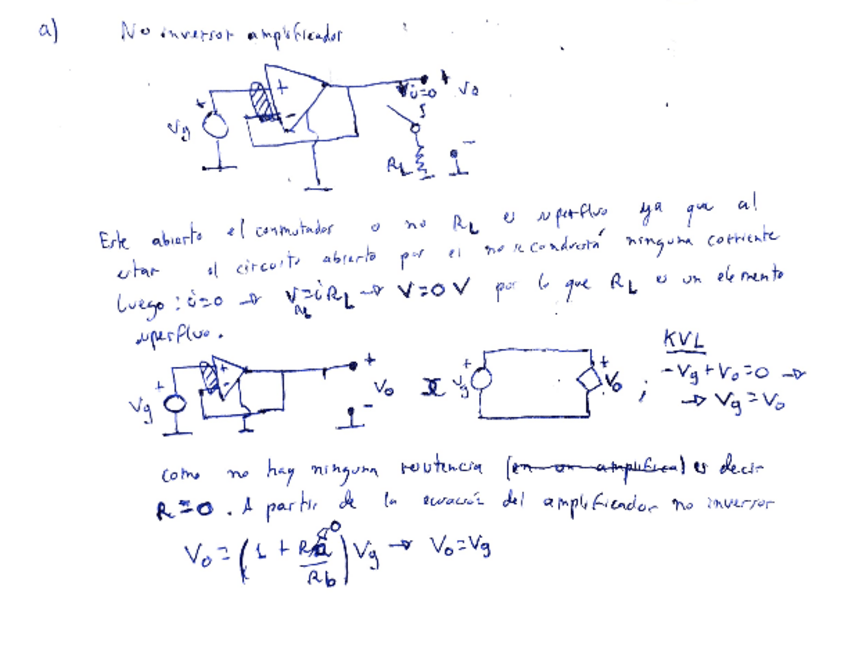 a) No inversor amplificador
+ Vg + - i=0 + Vo
S
RL -
Este abierto el conmutador o no RL es superfluo ya que al
estar el circuito abierto por el no se conducirá ninguna corriente
luego: i=0 → V=iRL → V=0 V por lo que RL es un elemento
RL
superfluo.
KVL
+ Vg + - + Vo - + Vg + Vo ; -Vg+Vo=0 →
→ Vg=Vo
como no hay ninguna resistencia (en un amplifica) es decir
R=0. A partir de la ecuación del amplificador no inversor
Vo=(1 + Ra/Rb)Vg → Vo=Vg
0